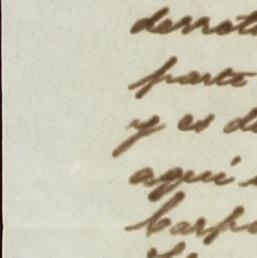 derrot
parte
y es d
aqui
Carp